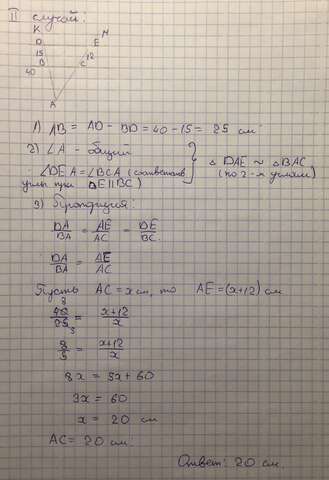 II случай:
K
D
M
E
15
12
B
C
40
A
1) AB = AD - BD = 40 - 15 = 25 см
2) ∠A - общий
∠DEA = ∠BCA (соответств.
углы при DE ∥ BC)
△DAE ≈ △BAC
(по 2-м углам)
3) Пропорция:
DA/BA = AE/AC = DE/BC.
DA/BA = AE/AC
Пусть AC = x см, то AE = (x+12) см
8
40/25 = x+12/x
5
8/5 = x+12/x
8x = 5x + 60
3x = 60
x = 20 см
AC = 20 см.
Ответ: 20 см.